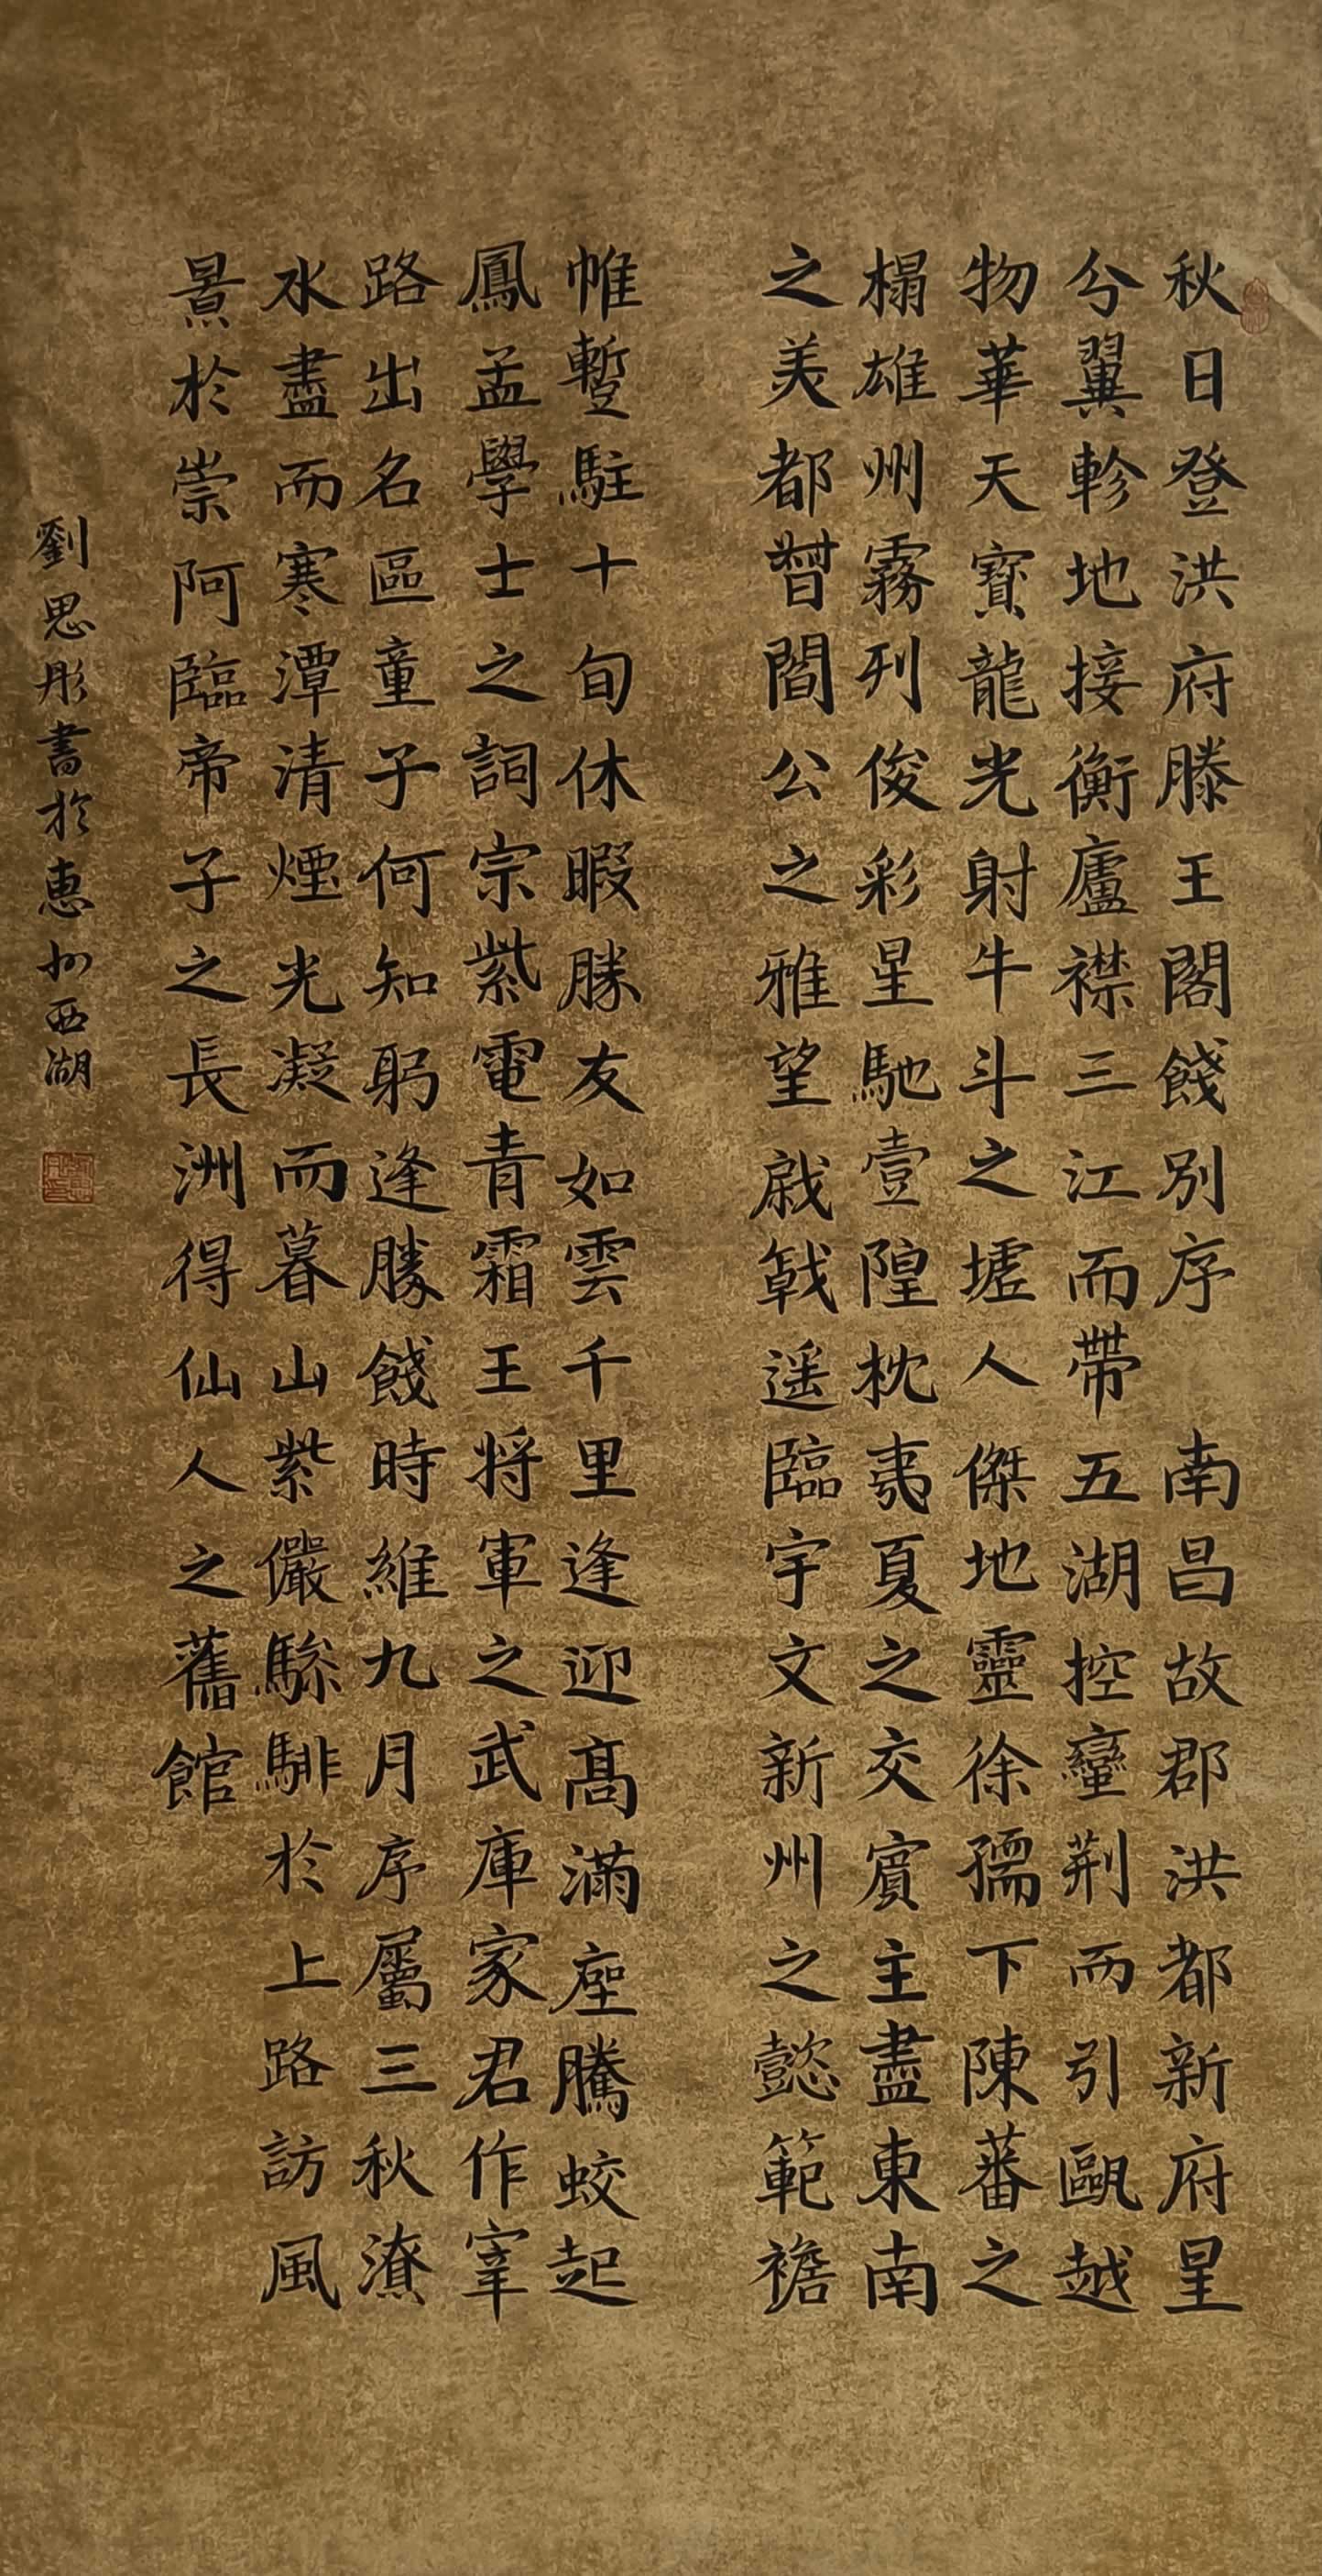 秋日登洪府滕王閣餞別序　南昌故郡洪都新府星
分翼軫地接衡廬襟三江而帶五湖控蠻荆而引甌越
物華天寶龍光射牛斗之墟人傑地靈徐孺下陳蕃之
榻雄州霧列俊彩星馳臺隍枕夷夏之交賓主盡東南
之美都督閻公之雅望戟遥臨宇文新州之懿範襜
帷蹔駐十旬休暇勝友如雲千里逢迎髙滿座騰蛟起
鳳孟學士之詞宗紫電青霜王將軍之武庫家君作宰
路出名區童子何知躬逢勝餞時維九月序屬三秋潦
水盡而寒潭清煙光凝而暮山紫儼驂騑於上路訪風
景於崇阿臨帝子之長洲得仙人之舊館
劉思彤書於惠州西湖